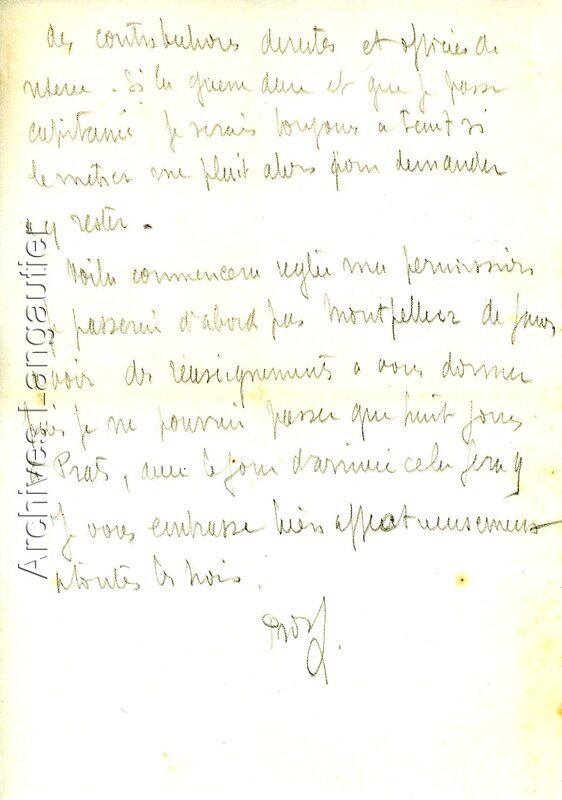 des contributions directes et officier de
réserve. Si la guerre dure et que je passe
capitaine je serais toujours à temps si
le métier me plait alors pour demander
à y rester.
Voilà comment sera réglée ma permission
je passerai d'abord par Montpellier de façon
avoir des renseignements à vous donner
mais je ne pourrai passer que huit jours
à Prats, avec le jour d'arrivée cela fera 9
Je vous embrasse bien affectueusement
à toutes les trois.
Archives Langautier